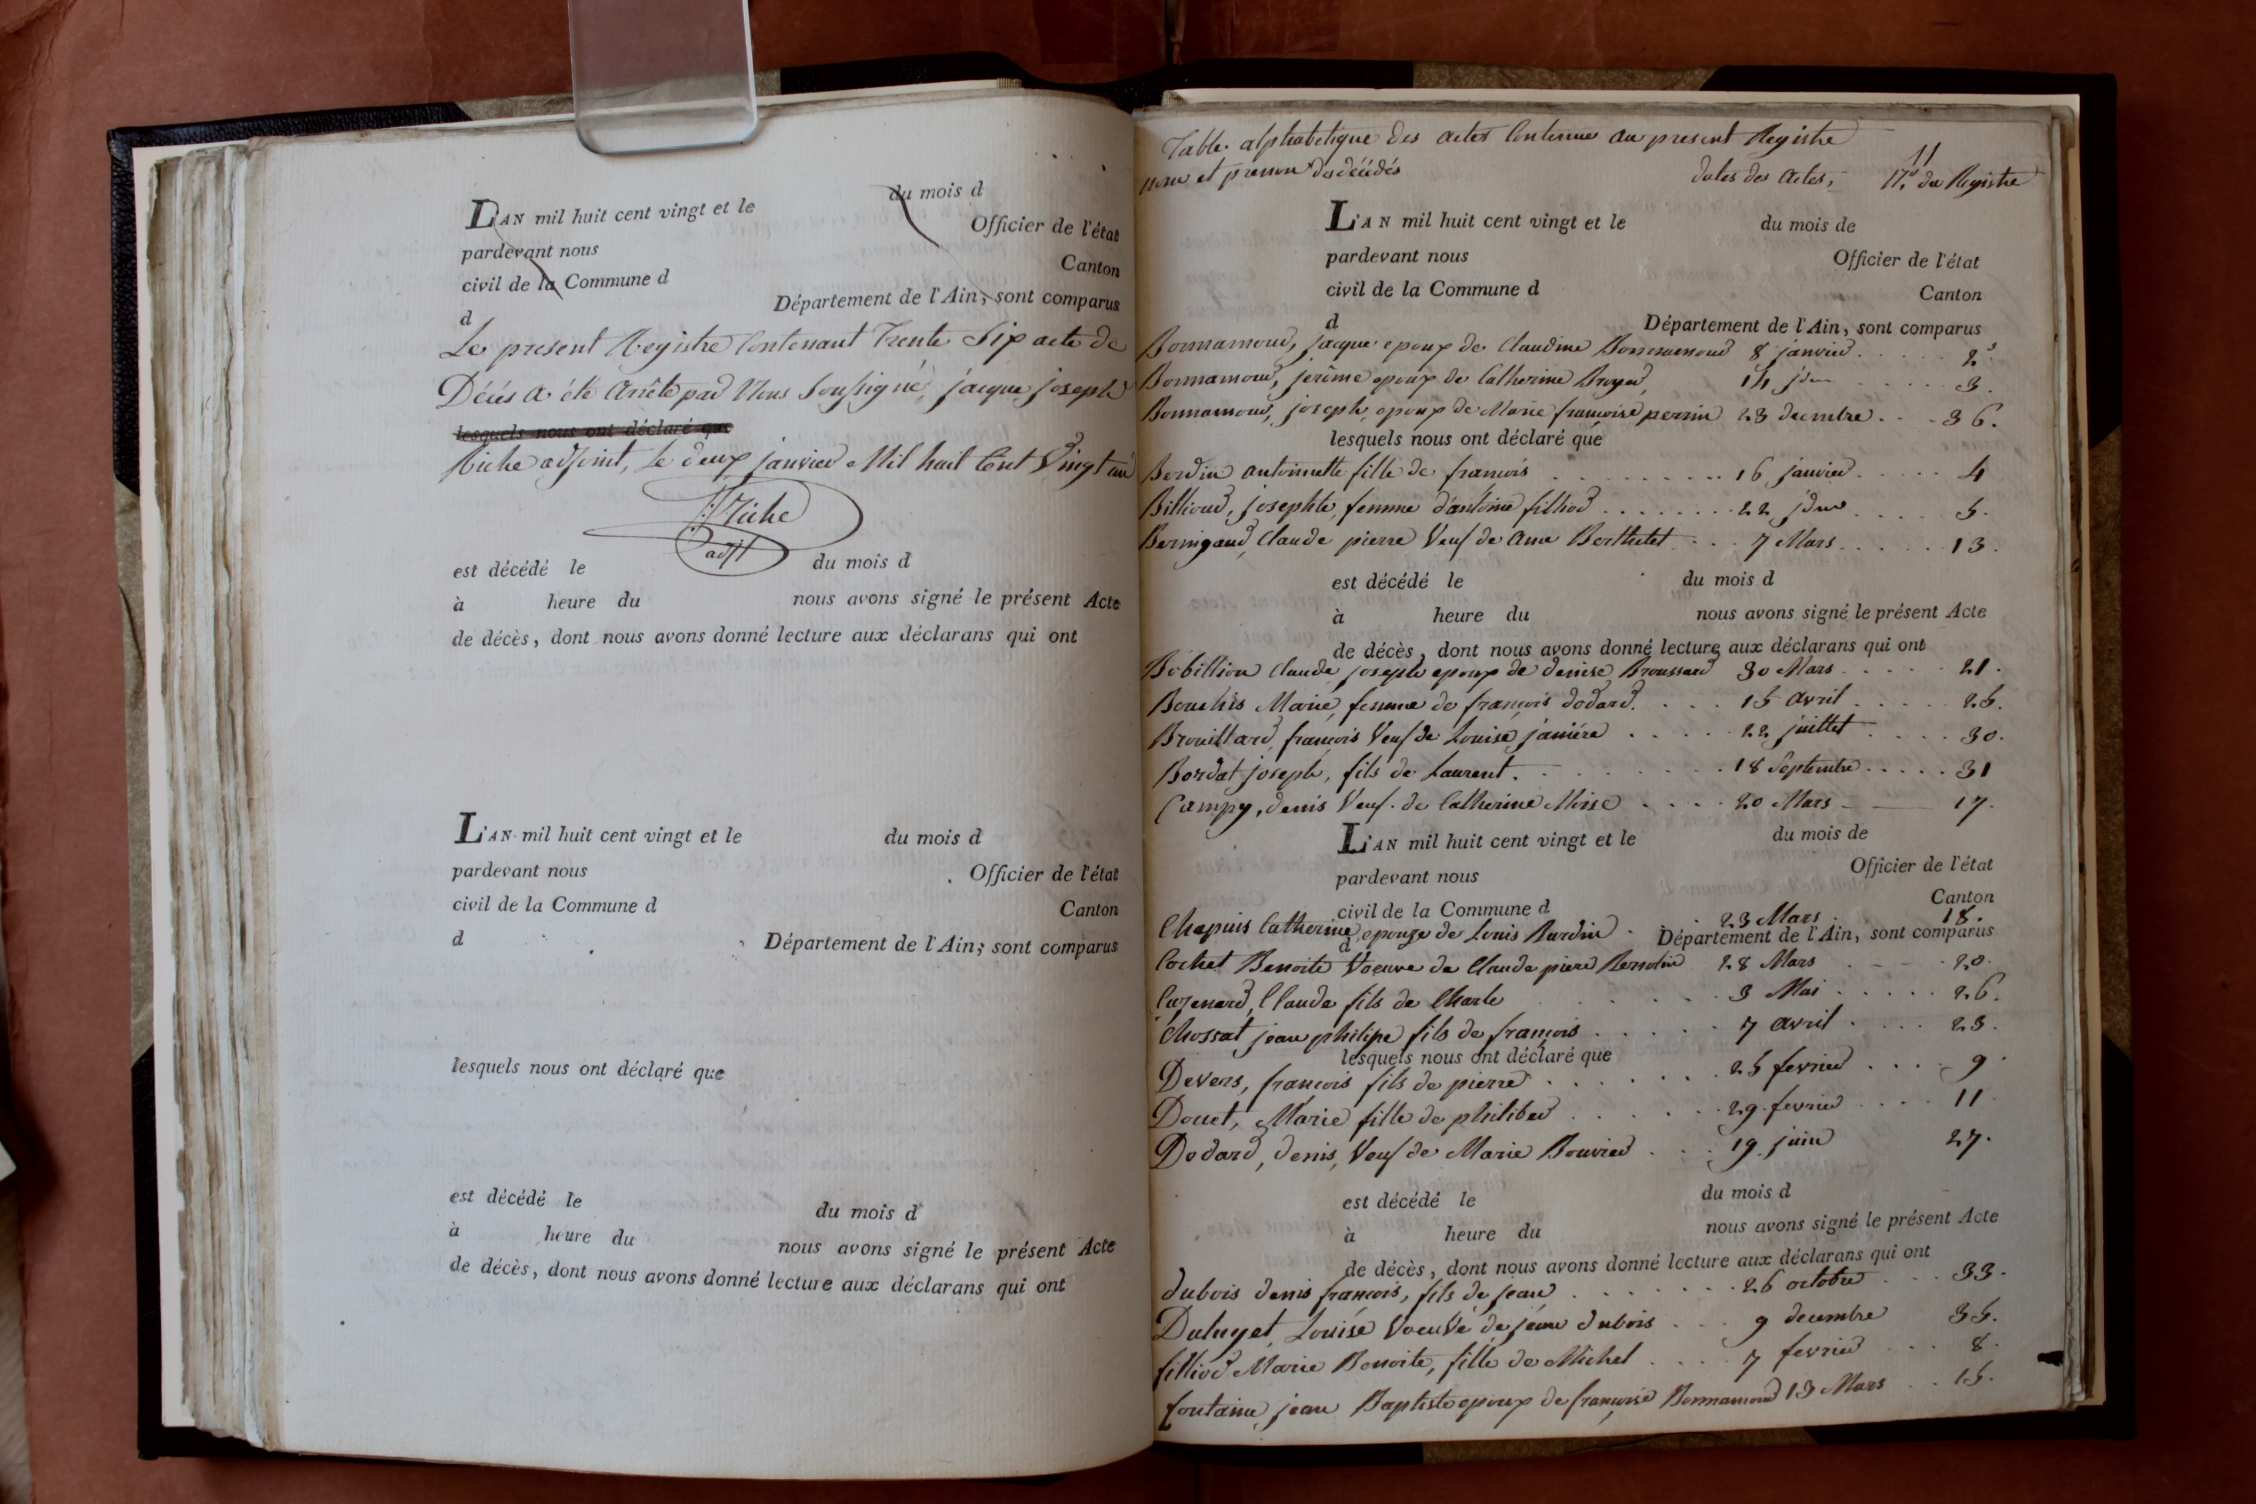 L'AN mil huit cent vingt et le du mois d
pardevant nous Officier de l'état
civil de la Commune d Canton
d Département de l'Ain, sont comparus
Le present Registre Contenant trente Six acte de
Décés a été arrêté par Nous Soussigné, jacque joseph
lesquels nous ont déclaré que
Riche adjoint, le deux janvier Mil huit Cent Vingt un
Riche
adjt
est décédé le du mois d
à heure du nous avons signé le présent Acte
de décès, dont nous avons donné lecture aux déclarans qui ont
L'AN mil huit cent vingt et le du mois d
pardevant nous Officier de l'état
civil de la Commune d Canton
d Département de l'Ain, sont comparus
lesquels nous ont déclaré que
est décédé le du mois d
à heure du nous avons signé le présent Acte
de décès, dont nous avons donné lecture aux déclarans qui ont
Table alphabetique des actes Contenue au present Registre
11
nom et prenom des décédés dates des actes, N.° du Registre
L'AN mil huit cent vingt et le du mois de
pardevant nous Officier de l'état
civil de la Commune d Canton
d Département de l'Ain, sont comparus
Bonnamour, jacque epoux de Claudine Bonnamour 8 janvier . . . . . 2
Bonnamour, jerôme epoux de Catherine Broyer 14 idem . . . . . . 3.
Bonnamour, joseph, epoux de Marie françoise perrin 23 decembre . . . 36.
lesquels nous ont déclaré que
Bordin antoinette fille de francois . . . . . . . . . 16 janvier . . . . . 4
Billioud, josephte, femme d'antoine filliod . . . . . . . 22 idem . . . . 5.
Bernigaud, Claude pierre Veuf de anne Berthelet . . . 7 Mars . . . . . 13.
est décédé le du mois d
à heure du nous avons signé le présent Acte
de décès, dont nous avons donné lecture aux déclarans qui ont
Bobillion Claude joseph epoux de denise Broussard 30 Mars . . . . . 21.
Bouchis Marie, femme de françois dodard . . . . 15 avril . . . . . 25.
Brouillard, françois Veuf de Louise janiére . . . . . 22 juillet . . . . 30.
Bordat joseph, fils de Laurent . . . . . . . . . 18 Septembre . . . . . 31
Campy, denis Veuf de Catherine Moise . . . . 20 Mars - —— 17.
L'AN mil huit cent vingt et le du mois de
pardevant nous Officier de l'état
civil de la Commune d Canton
Chapuis Catherine, epouze de Louis Burdin . . 23 Mars . 18.
d Département de l'Ain, sont comparus
Cochet Benoite Voeuve de Claude pierre 28 Mars . - - . 20.
Claude fils de Charle . . . . . . 3 Mai . . . . . 26.
Chossat, jean philipe fils de françois . . . . . 7 avril . . . . 23.
lesquels nous ont déclaré que
Devers, francois fils de pierre . . . . . . 25 fevrier . . . . 9.
Douet, Marie fille de philiber . . . . . . 29 fevrier . . . . 11
Dodard, denis, Veuf de Marie Bouvier . . . 19 juin 27.
est décédé le du mois d
à heure du nous avons signé le présent Acte
de décès, dont nous avons donné lecture aux déclarans qui ont
dubois denis françois, fils de jean . . . . . . . 26 octobre . . . 33.
Louise Voeuve de jean dubois . . . 9 decembre 35.
filliod Marie Benoite, fille de Michel . . . . 7 fevrier . . . 8.
fontaine, jean Baptiste epoux de françoise Bonnamour 13 Mars . . 15.